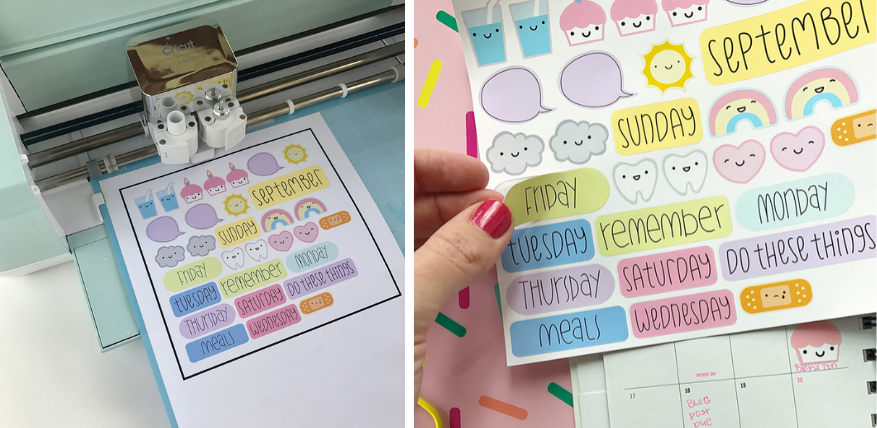 Cricut
September
Sunday
Friday
remember
Monday
Tuesday
Saturday
Do these things
Thursday
Wednesday
Meals
September
Sunday
Friday
Tuesday
remember
Monday
Thursday
Saturday
Do these things
Meals
Wednesday
17
18
19
20
Blog
post
due